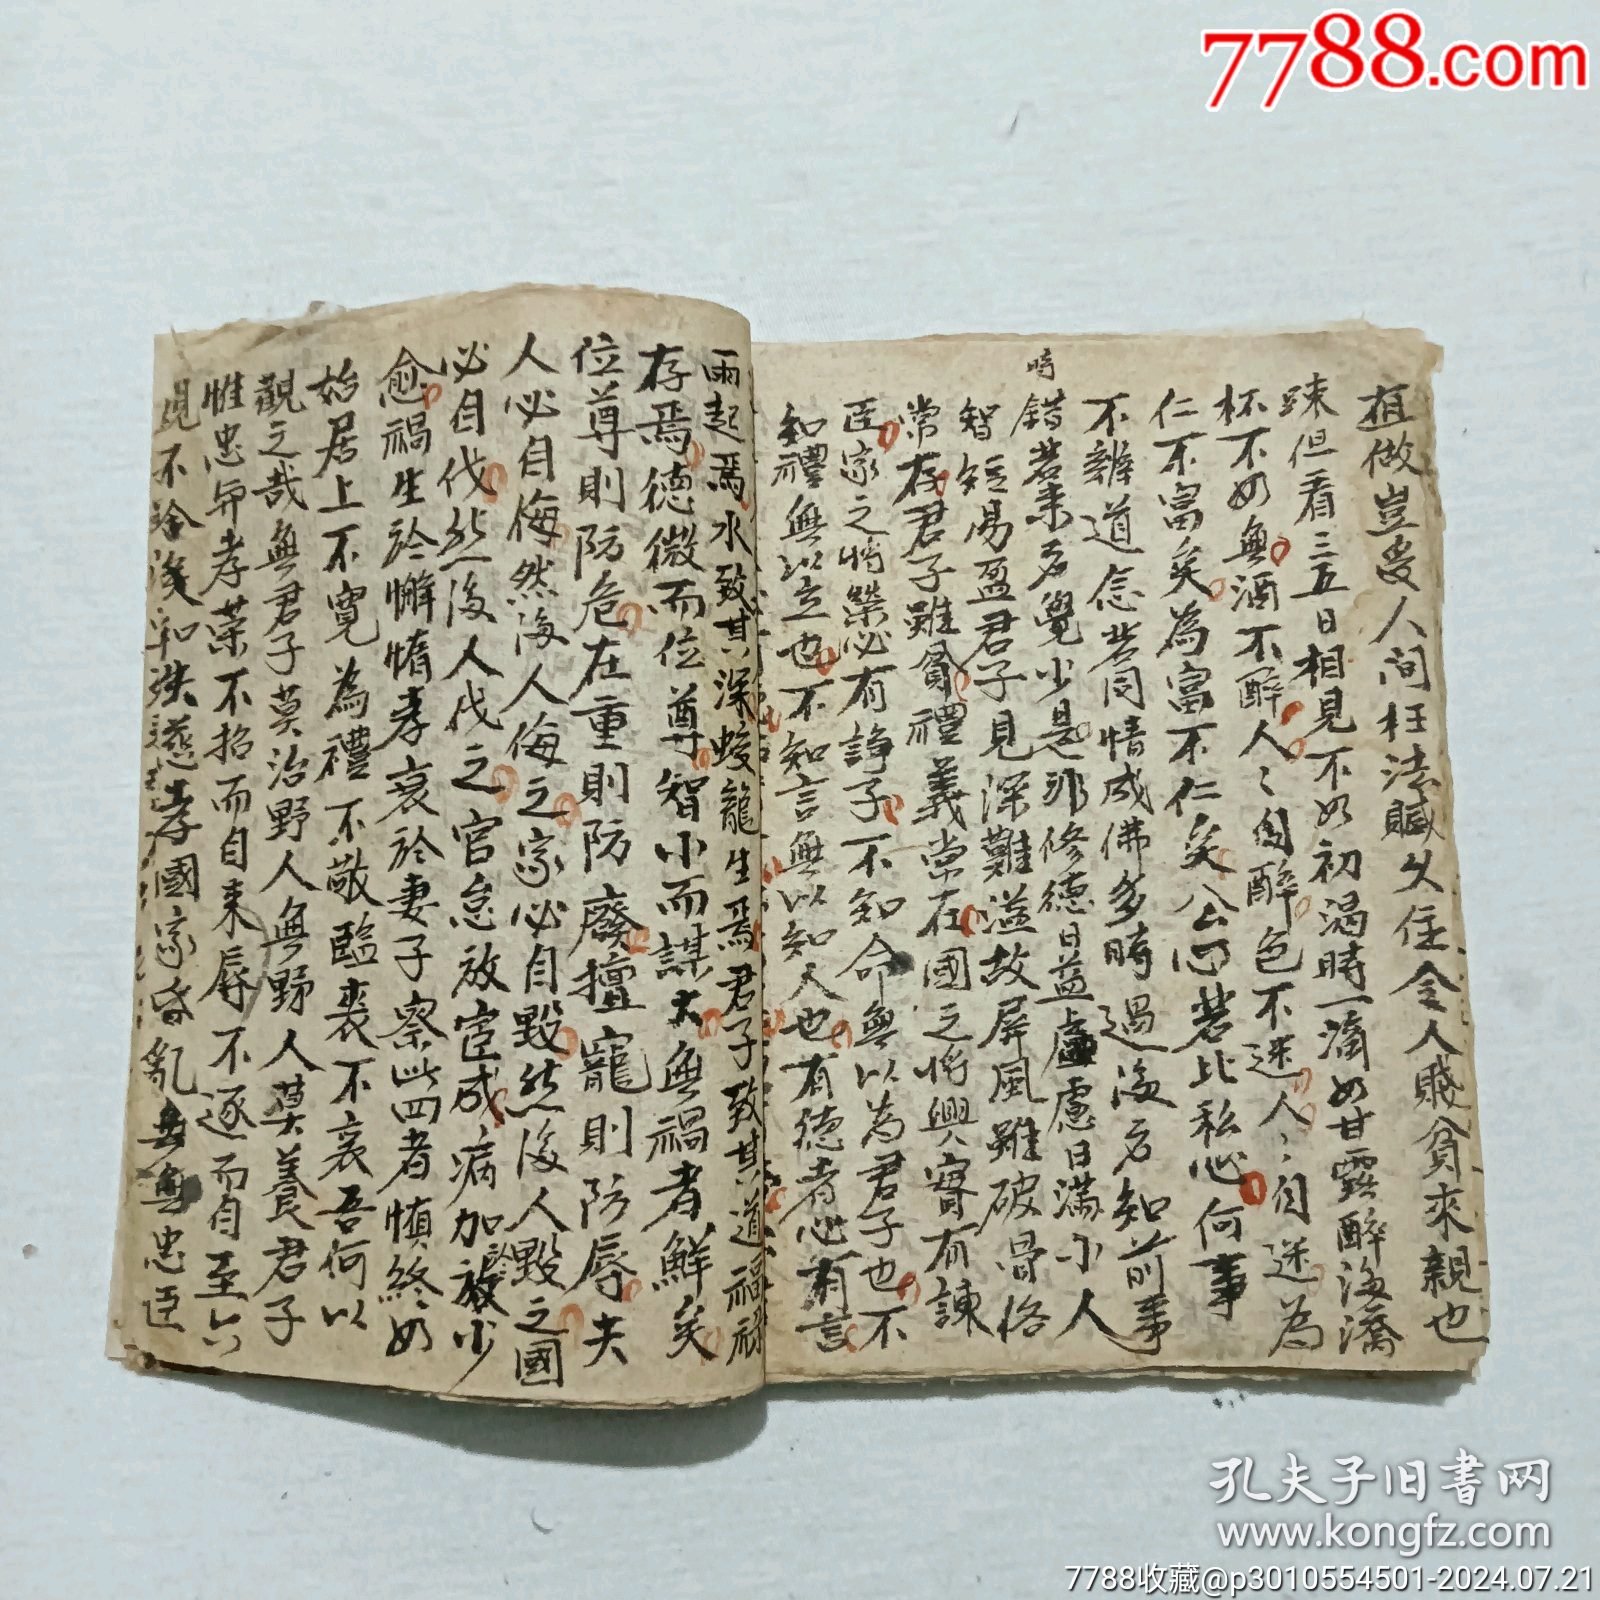 7788.com
植做豈受人间枉法贓久住令人賤貧來親也
踈但看三五日相見不如初渴時一滴如甘露醉後添
杯不如無酒不醉人〻自醉色不迷人〻自迷為
仁不富矣為富不仁矣公心若比私心何事
不辦道念若同情成佛多時過後方知前事
時
錯若未方覺少是非修德日益慮日满小人
智短易盈君子見深難溢故屏風雖破骨格
常存君子雖貧禮義常在國之將興實有諫
臣家之將榮必有諍子不知命無以為君子也不
知禮無以立也不知言無以知人也有德者必有言
雨起焉水致其深蛟龍生焉君子致其道福禄
存焉德微而位尊智小而謀大無禍者鮮矣
位尊則防危在重則防廢擅寵則防辱夫
人必自侮然後人侮之家必自毀然後人毀之國
必自伐然後人伐之官怠放宦成病加放少
愈禍生於懈惰孝衰於妻子察此四者慎終如
始居上不寬為禮不敬臨丧不哀吾何以
觀之哉無君子莫治野人無野人莫養君子
惟忠与孝荣不招而自来辱不逐而自至六
親不合後和孝國家昏亂無忠臣
孔夫子旧书网
www.kongfz.com
7788收藏@p3010554501-2024.07.21